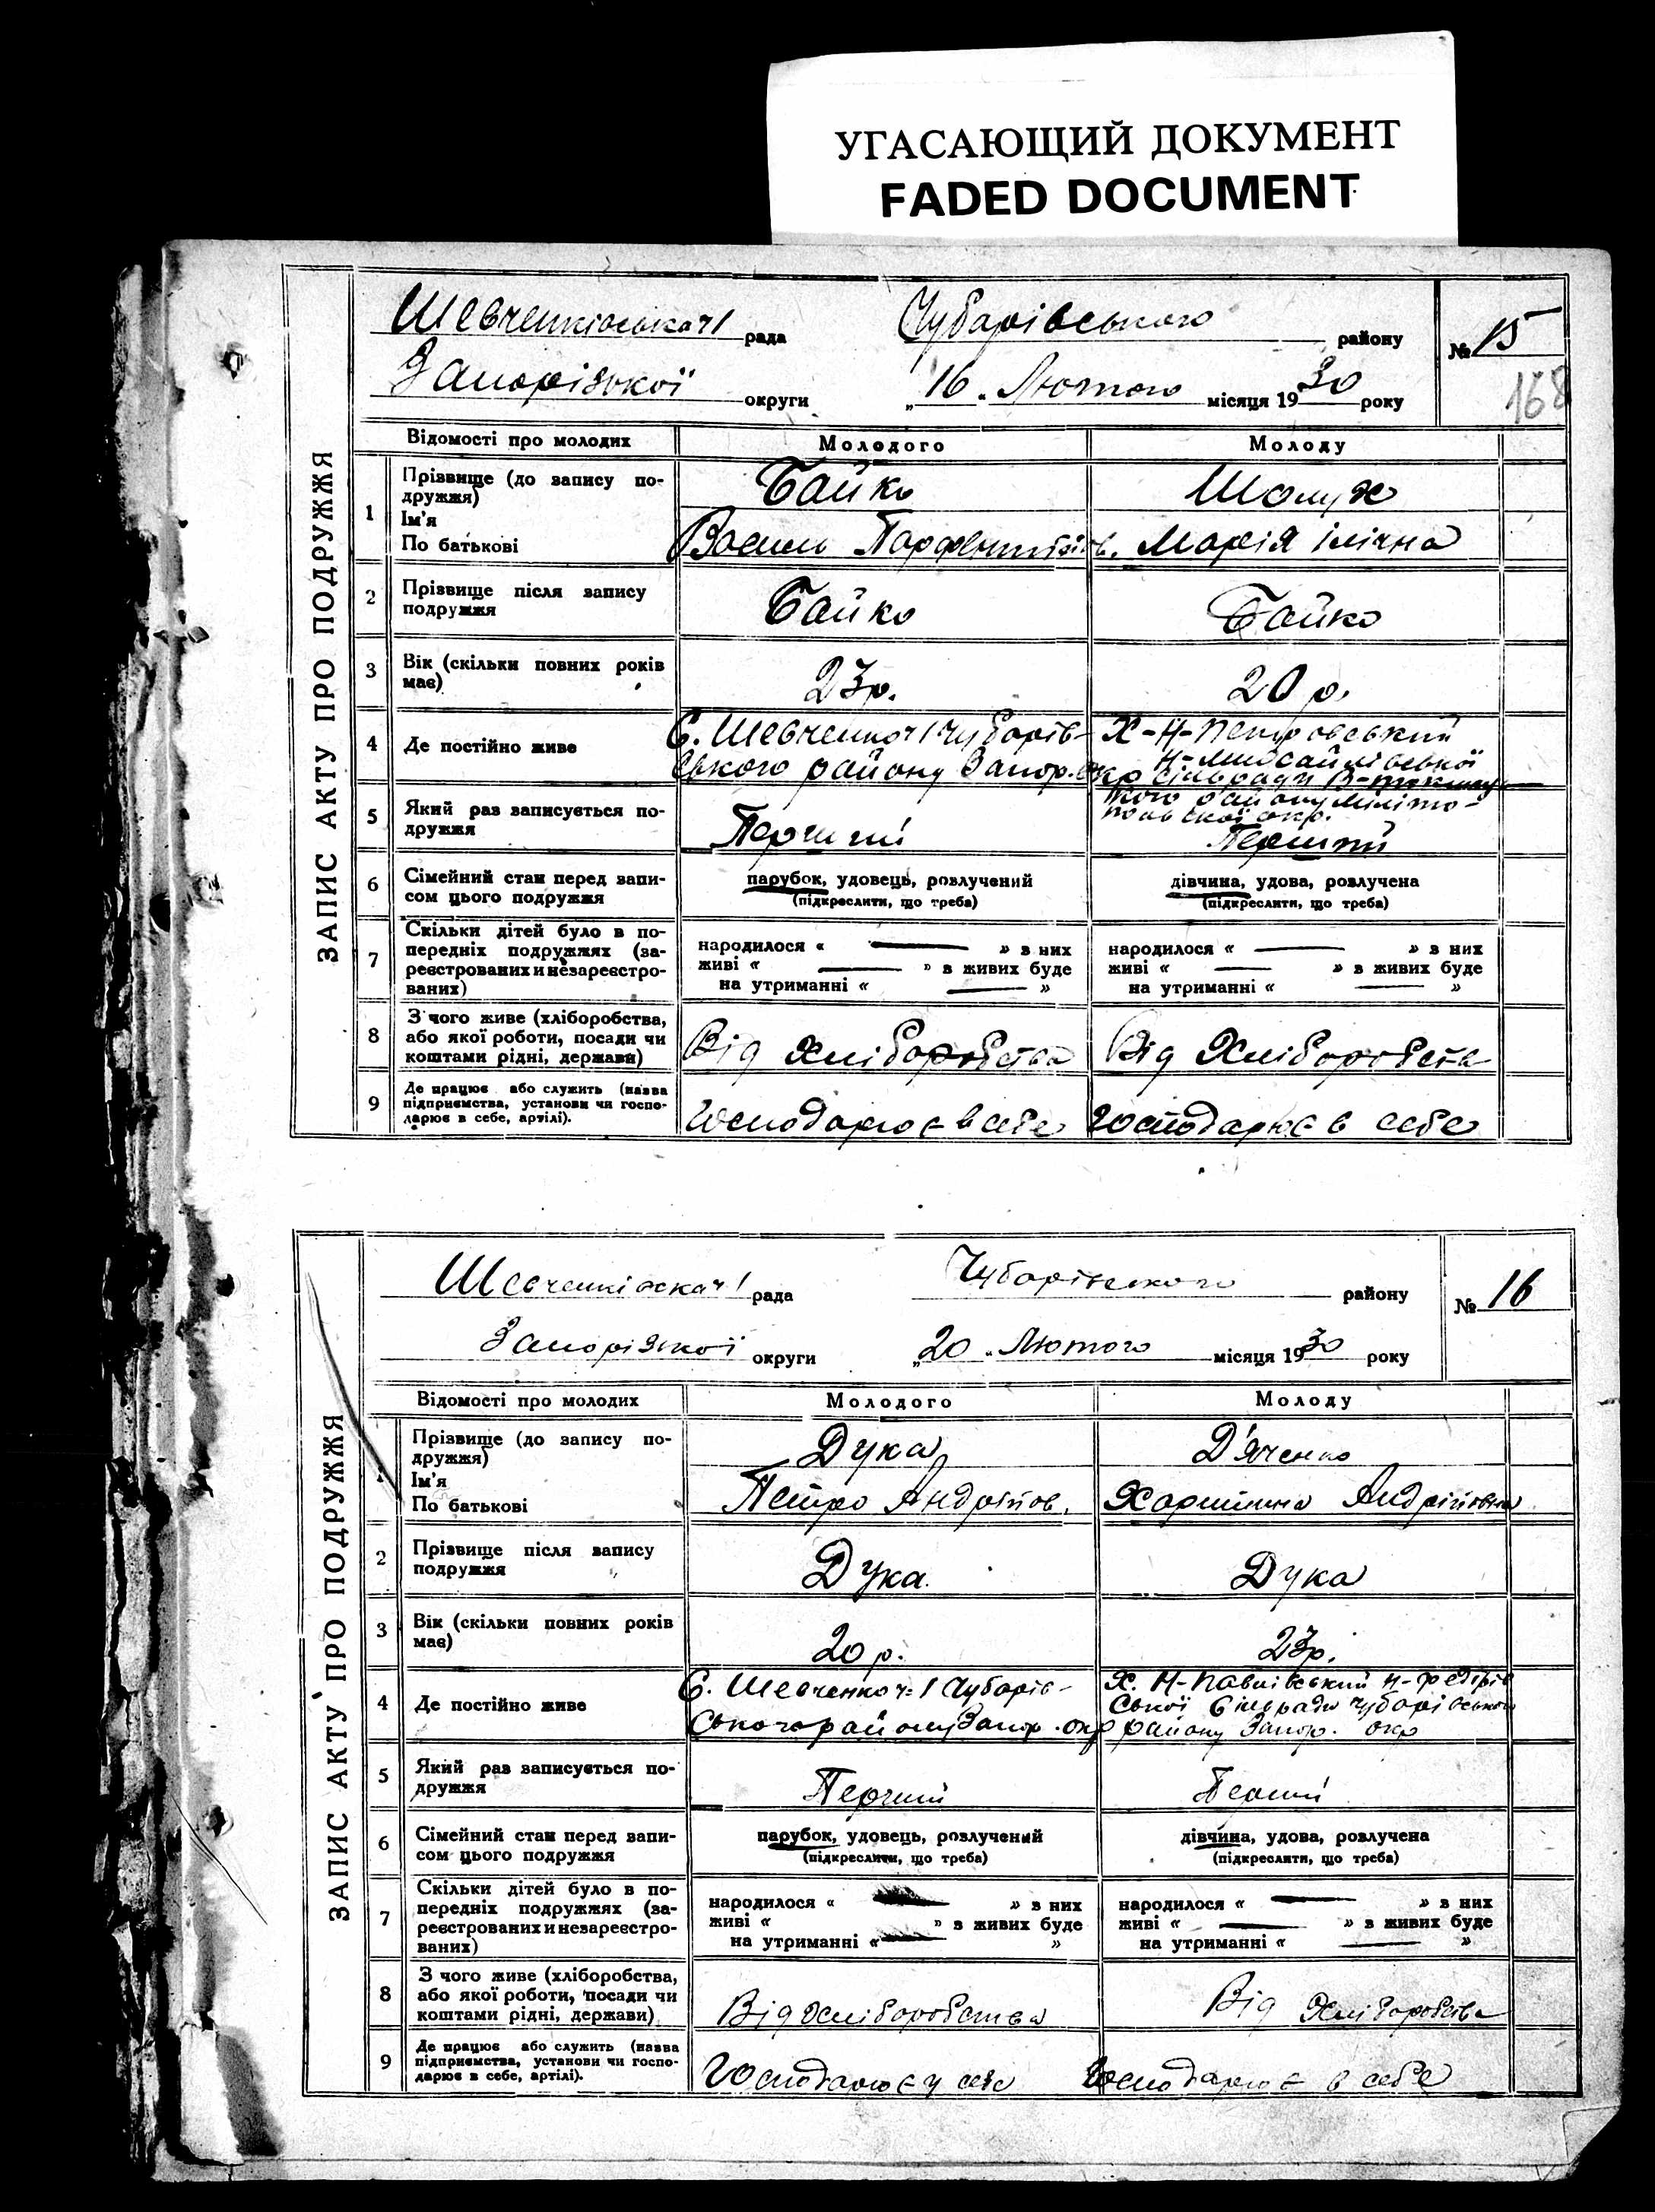 УГАСАЮЩИЙ ДОКУМЕНТ
FADED DOCUMENT
ЗАПИС АКТУ ПРО ПОДРУЖЖЯ
Шевченківська ч1 рада Чубарівського району № 15
Запорізької округи „16“ Лютого місяця 1930 року
168
Відомості про молодих Молодого Молоду
1 Прізвище (до запису по-
дружжя) Байко Шолух
Ім'я
По батькові Василь Марія Ілічна
2 Прізвище після запису
подружжя Байко Байко
3 Вік (скільки повних років
має) 23р. 20 р.
4 Де постійно живе
С. Шевченко ч1 Чубарів-
ського району Запор. окр
Х-Н-Петровський
Н-Михайлівської
сільради В-
кого району Меліто-
польської окр.
5 Який раз записується по-
дружжя Перший Перший
6 Сімейний стан перед запи-
сом цього подружжя
парубок, удовець, розлучений
(підкреслити, що треба)
дівчина, удова, розлучена
(підкреслити, що треба)
7 Скільки дітей було в по-
передніх подружжях (за-
реєстрованих и незареєстро-
ваних)
народилося « — » з них
живі « — » в живих буде
на утриманні « — »
народилося « — » з них
живі « — » в живих буде
на утриманні « — »
8 З чого живе (хліборобства,
або якої роботи, посади чи
коштами рідні, держави)
Від хліборобства Від Хліборобств
9 Де працює або служить (назва
підприємства, установи чи госпо-
дарює в себе, артілі).
Господарює в себе Господарює в себе
ЗАПИС АКТУ ПРО ПОДРУЖЖЯ
Шевченківська ч1 рада Чубарівського району № 16
Запорізької округи „20“ Лютого місяця 1930 року
Відомості про молодих Молодого Молоду
1 Прізвище (до запису по-
дружжя) Дука Д'яченко
Ім'я
По батькові Петро Андрійов. Харитина Андріївна
2 Прізвище після запису
подружжя Дука Дука
3 Вік (скільки повних років
має) 20 р. 23р.
4 Де постійно живе
С. Шевченко ч=1 Чубарів-
ського району Запор. окр
Х. Н-Павлівський Н-Федорів
ської Сільради Чубарівського
району Запор. окр
5 Який раз записується по-
дружжя Перший Перший
6 Сімейний стан перед запи-
сом цього подружжя
парубок, удовець, розлучений
(підкреслити, що треба)
дівчина, удова, розлучена
(підкреслити, що треба)
7 Скільки дітей було в по-
передніх подружжях (за-
реєстрованих и незареєстро-
ваних)
народилося « — » з них
живі « » в живих буде
на утриманні « — »
народилося « — » з них
живі « — » в живих буде
на утриманні « — »
8 З чого живе (хліборобства,
або якої роботи, посади чи
коштами рідні, держави)
Від хліборобства Від Хліборобства
9 Де працює або служить (назва
підприємства, установи чи госпо-
дарює в себе, артілі).
Господарює у себе Господарює в себе